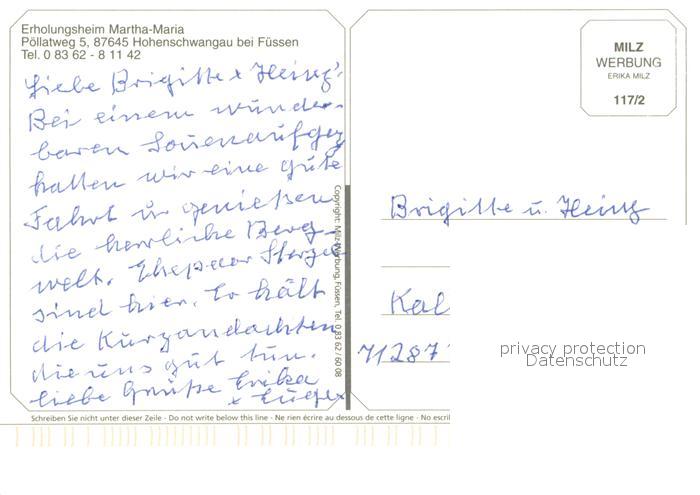 Erholungsheim Martha-Maria
Pöllatweg 5, 87645 Hohenschwangau bei Füssen
Tel. 0 83 62 - 8 11 42
Liebe Brigitte + Heinz!
Bei einem wunder-
baren Sonnenaufgang
hatten wir eine gute
Fahrt u. genießen
die herrliche Berg-
welt. Ehepaar
sind hier. Er hält
die Kurzandachten
die uns gut tun.
liebe Grüße Erika
+ Eugen
Copyright: Milz-Werbung, Füssen, Tel. 0 83 62 / 60 08
MILZ
WERBUNG
ERIKA MILZ
117/2
Brigitte u. Heinz
Kal
71287
privacy protection
Datenschutz
Schreiben Sie nicht unter dieser Zeile - Do not write below this line - Ne rien écrire au dessous de cette ligne - No escri